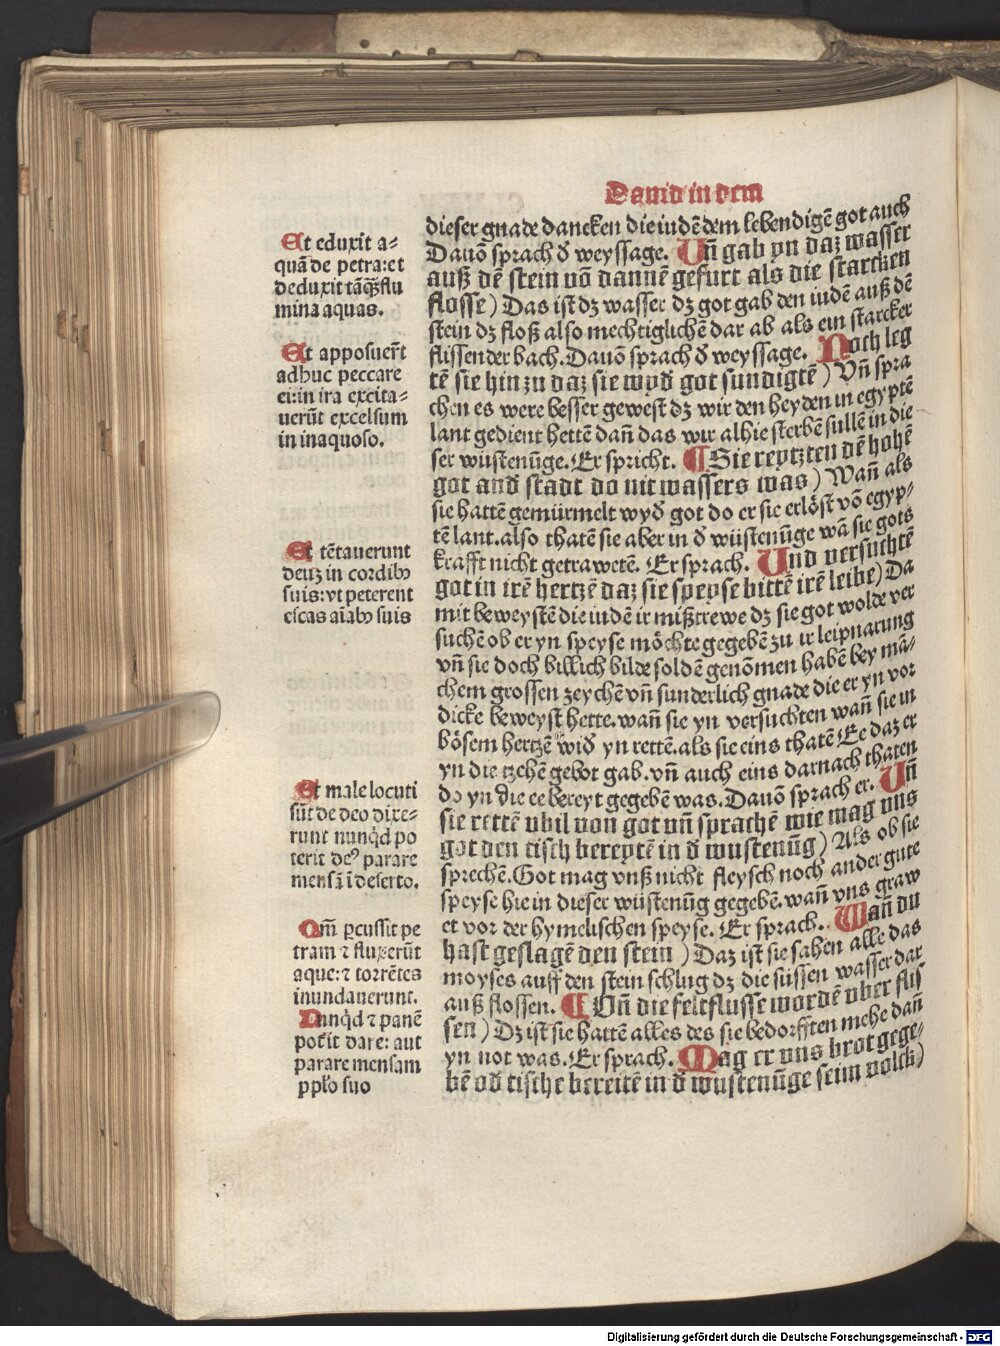 Dauid in dem
Et eduxit a⸗
quā de petra: et
deduxit tāq̄ȝ flu
mina aquas.
Et apposuer̄t
adhuc peccare
ei: in ira excita⸗
uerūt excelsum
in inaquoso.
Et tētauerunt
deuȝ in cordibꝰ
suis: vt peterent
escas aīabꝰ suis
Et male locuti
sūt de deo dixe⸗
runt nunq̇d po
terit deꝰ parare
mensā ī deserto.
Qm̄ ꝑcussit pe
tram ⁊ fluxerūt
aque: ⁊ torrētes
inundauerunt.
Nunq̇d ⁊ panē
pot̄it dare: aut
parare mensam
ppl̄o suo
dieser gnade dancken die iudē dem lebendigē got auch
Dauō sprach đ weyssage. Vn̄ gab yn daz wasser
auß dē stein vō dannē gefurt als die starcken
flosse) Das ist dȝ wasser dȝ got gab den iudē auß dē
stein dȝ floß also mechtiglichē dar ab als ein starcker
flissender bach. Dauō sprach đ weyssage. Noch leg
tē sie hin zu daz sie wyđ got sundigtē) Vn̄ spra
chen es were besser gewest dȝ wir den heyden in egyptē
lant gedient hettē dan̄ das wir alhie sterbē sullē in die
ser wüstenūge. Er spricht. ¶ Sie reytzten dē hohē
got and stadt do nit wassers was) Wan̄ als
sie hattē gemürmelt wyđ got do er sie erlöst vō egyp⸗
tē lant. also thatē sie aber in đ wüstenūge wā sie gots
krafft nicht getrawetē. Er sprach. Vnd versuchtē
got in irē hertzē daz sie speyse bittē irē leibe) Da
mit beweystē die iudē ir mißtrewe dȝ sie got wolde ver
suchē ob er yn speyse möchte gegebē zu ir leipnarung
vn̄ sie doch billich bilde soldē genōmen habē bey mā⸗
chem grossen zeychē vn̄ sunderlich gnade die er yn vor
dicke beweyst hette. wan̄ sie yn versuchten wan̄ sie in
bösem hertzē wiđ yn rettē. als sie eins thatē Ee daz er
yn die tzehē gebot gab. vn̄ auch eins darnach thaten
do yn die ee bereyt gegebē was. Dauō sprach er. Vn̄
sie rettē vbil von got vn̄ sprachē wie mag vns
got den tisch bereytē in đ wustenūg) Als ob sie
sprechē. Got mag vnß nicht fleysch noch ander gute
speyse hie in dieser wüstenūg gegebē. wan̄ vns graw
et vor der hymelischen speyse. Er sprach. Wan̄ du
hast geslagē den stein) Daz ist sie sahen alle das
moyses auff den stein schlug dȝ die süssen wasser dar
auß flossen. ¶ Vn̄ die feltflusse wordē vber flis
sen) Dȝ ist sie hattē alles des sie bedorfften mehe dan̄
yn not was. Er sprach. Mag er vns brot gege⸗
bē ođ tische bereitē in đ wustenūge seim volck)
Digitalisierung gefördert durch die Deutsche Forschungsgemeinschaft - DFG